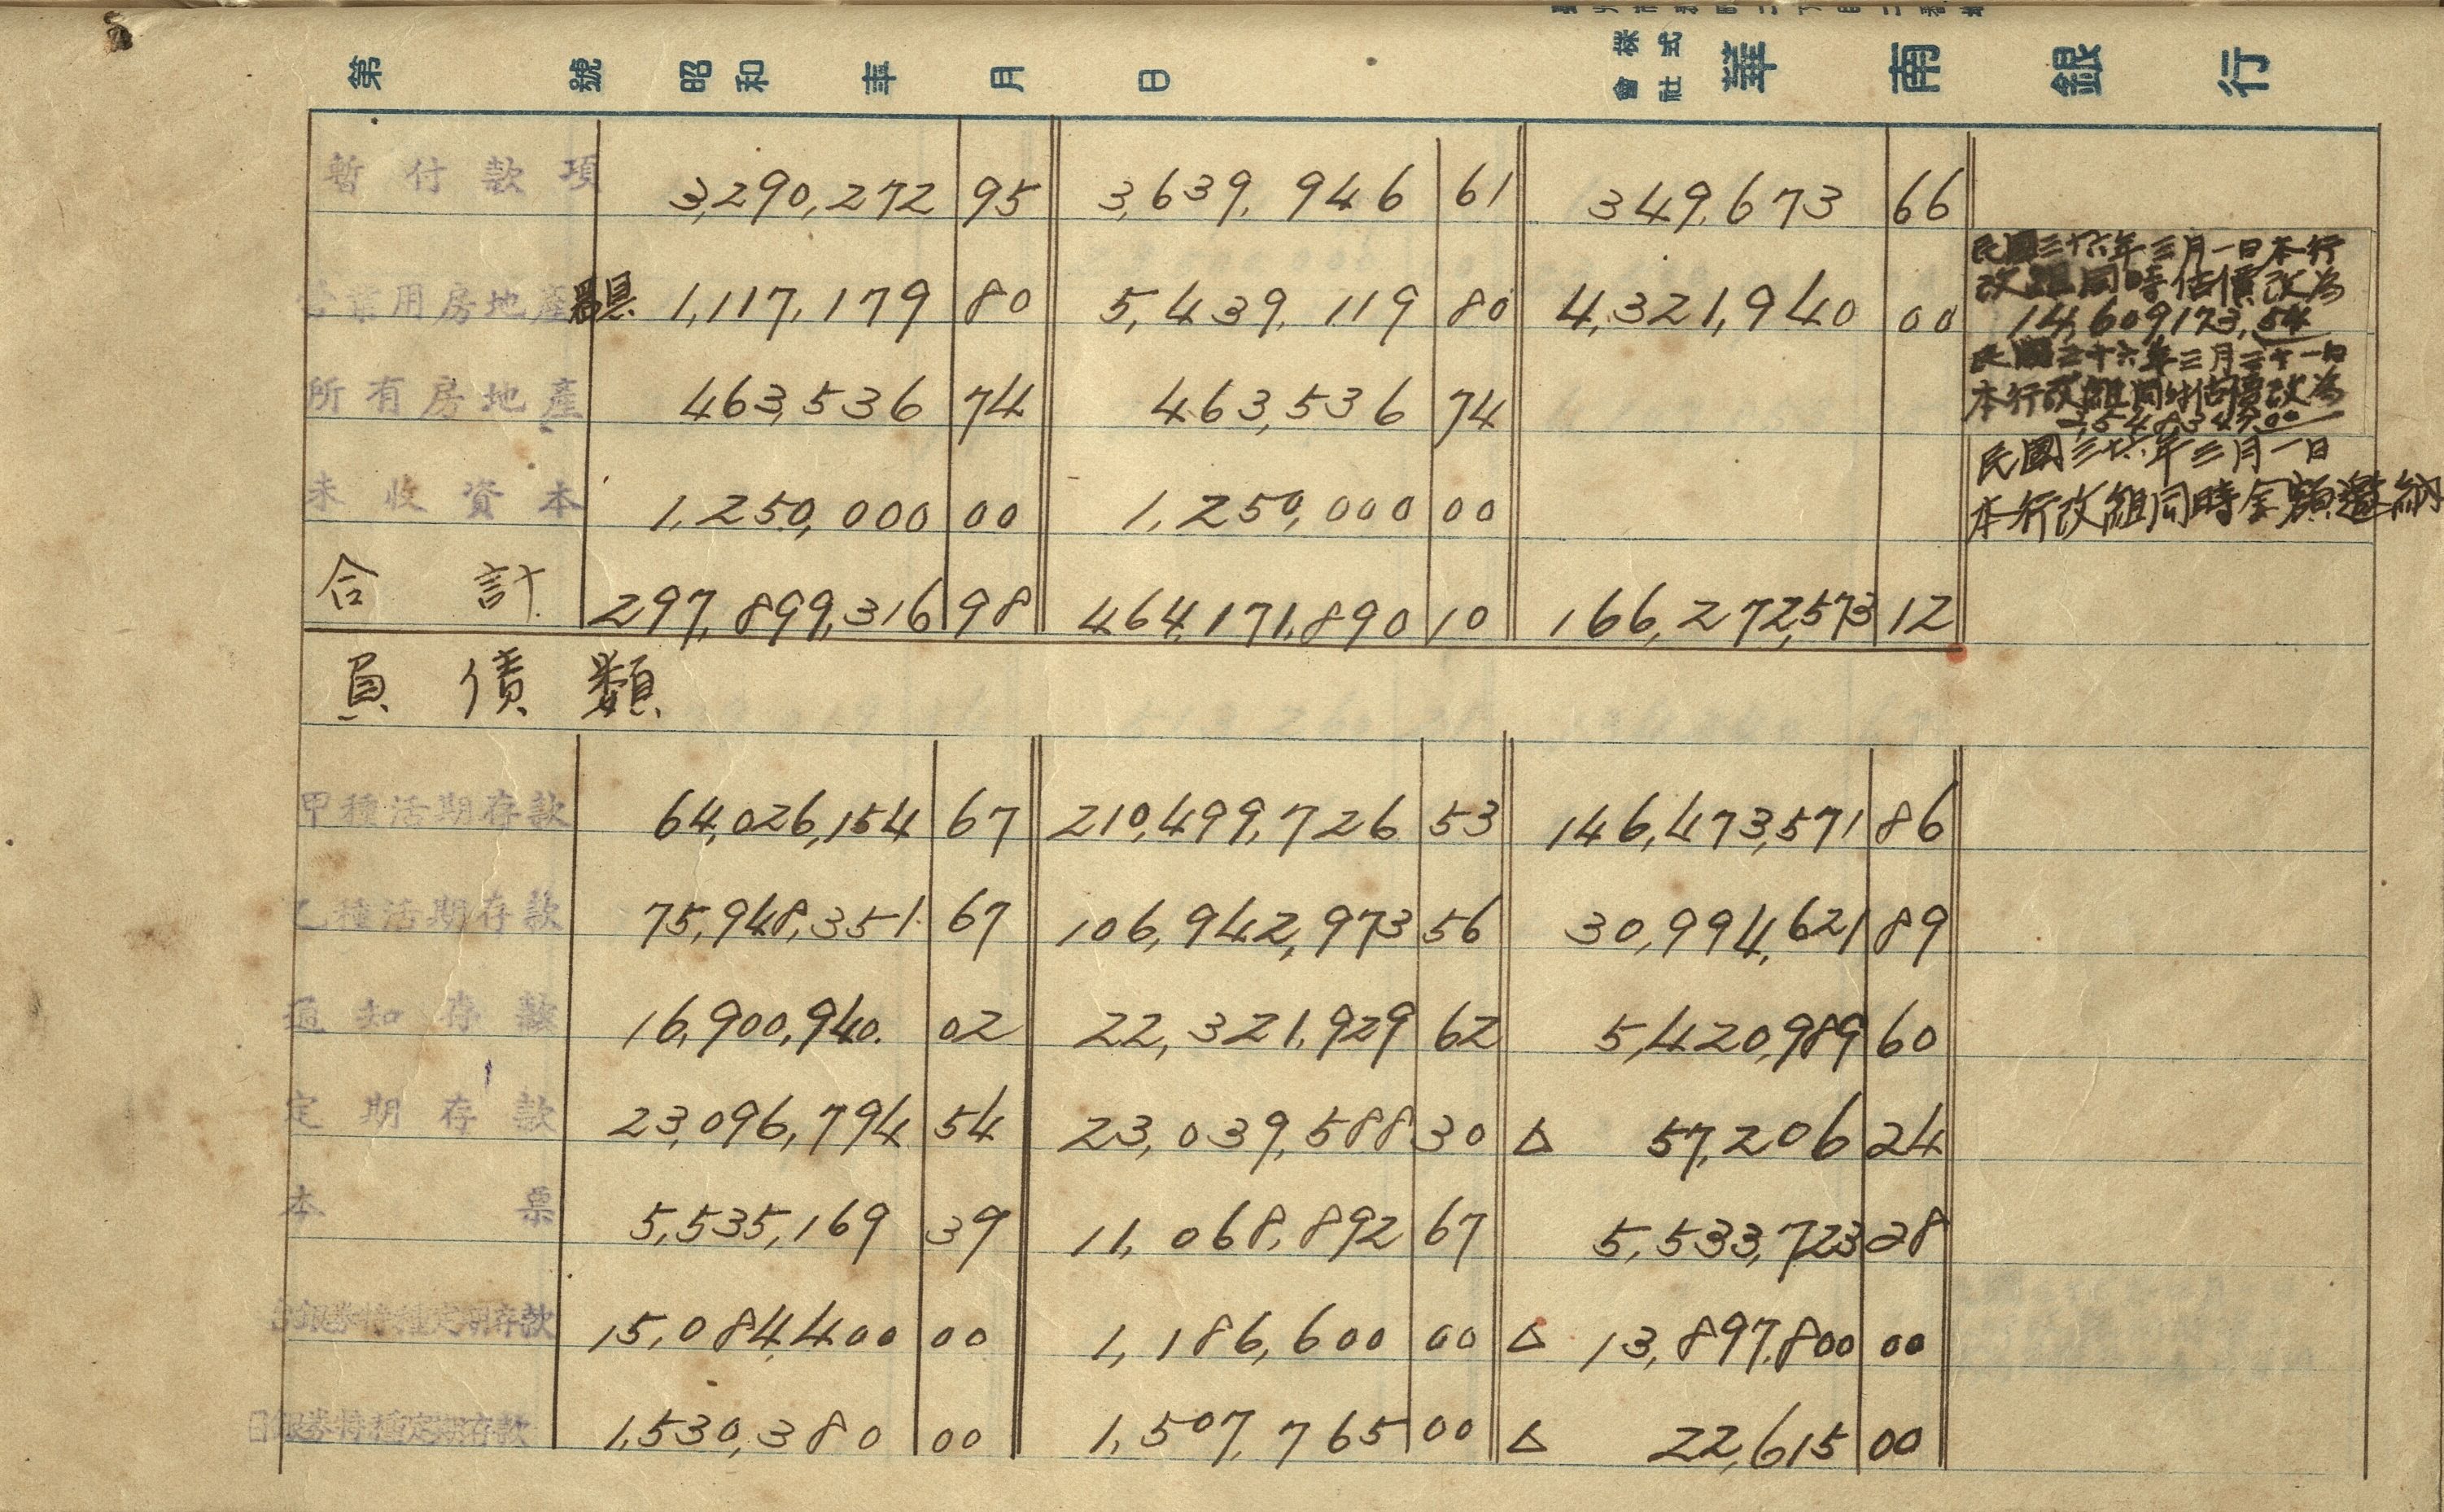 第 號 昭和 年 月 日 株式會社 華南銀行
暫付款項 3,290,272 95 3,639,946 61 349,673 66
營業用房地產器具 1,117,179 80 5,439,119 80 4,321,940 00
民國三十六年三月一日本行
改組同時估價改為
14,609,173.54
所有房地產 463,536 74 463,536 74
民國三十六年三月三十一日
本行改組同時估價改為
未收資本 1,250,000 00 1,250,000 00
民國三十六年三月一日
本行改組同時全額邀納
合計 297,899,316 98 464,171,890 10 166,272,573 12
負債類
甲種活期存款 64,026,154 67 210,499,726 53 146,473,571 86
乙種活期存款 75,948,351 67 106,942,973 56 30,994,621 89
通知存款 16,900,940. 02 22,321,929 62 5,420,989 60
定期存款 23,096,794 54 23,039,588 30 △ 57,206 24
本票 5,535,169 39 11,068,892 67 5,533,723 28
台銀券特種定期存款 15,084,400 00 1,186,600 00 △ 13,897,800 00
日銀券特種定期存款 1,530,380 00 1,507,765 00 △ 22,615 00